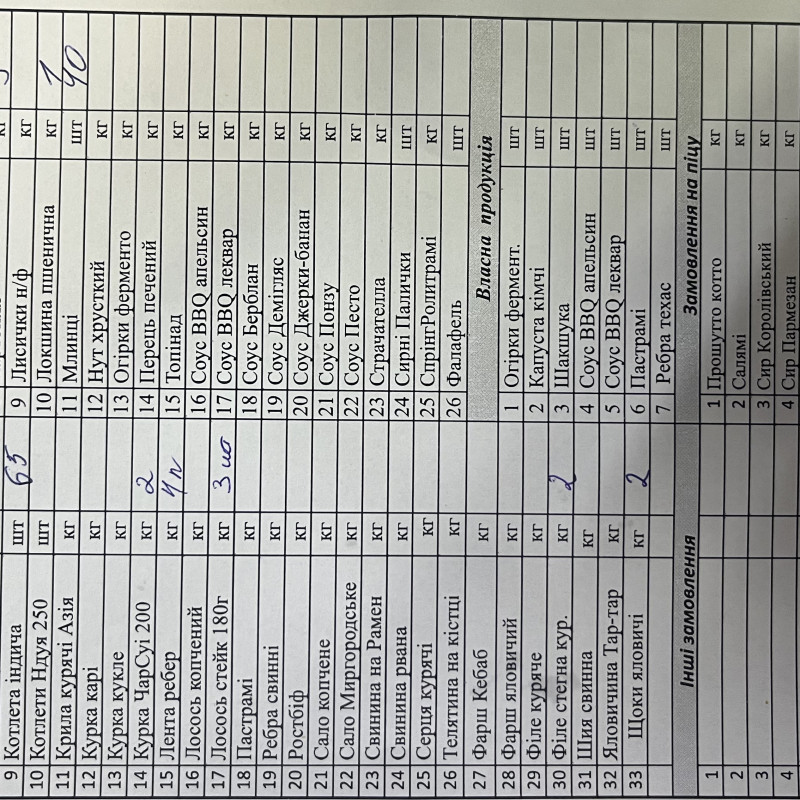 9 Котлета індича шт 65
10 Котлети Ндуя 250 шт
11 Крила курячі Азія кг
12 Курка карі кг
13 Курка кукле кг
14 Курка ЧарСуі 200 кг 2
15 Лента ребер кг 4п
16 Лосось копчений кг
17 Лосось стейк 180г кг 3
18 Пастрамі кг
19 Ребра свинні кг
20 Ростбіф кг
21 Сало копчене кг
22 Сало Миргородське кг
23 Свинина на Рамен кг
24 Свинина рвана кг
25 Серця курячі кг
26 Телятина на кістці кг
27 Фарш Кебаб кг
28 Фарш яловичий кг
29 Філе куряче кг
30 Філе стегна кур. кг 2
31 Шия свинна кг
32 Яловичина Тар-тар кг
33 Щоки яловичі кг 2
Інші замовлення
1
2
3
4
кг
9 Лисички н/ф кг
10 Локшина пшенична кг 1
11 Млинці шт 40
12 Нут хрусткий кг
13 Огірки ферменто кг
14 Перець печений кг
15 Топінад кг
16 Соус BBQ апельсин кг
17 Соус BBQ леквар кг
18 Соус Берблан кг
19 Соус Демігляс кг
20 Соус Джерки-банан кг
21 Соус Понзу кг
22 Соус Песто кг
23 Страчателла кг
24 Сирні Палички шт
25 СпрінгРолитрамі кг
26 Фалафель шт
Власна продукція
1 Огірки фермент. шт
2 Капуста кімчі шт
3 Шакшука шт
4 Соус BBQ апельсин шт
5 Соус BBQ леквар шт
6 Пастрамі шт
7 Ребра техас шт
Замовлення на піцу
1 Прошутто котто кг
2 Салямі кг
3 Сир Королівський кг
4 Сир Пармезан кг